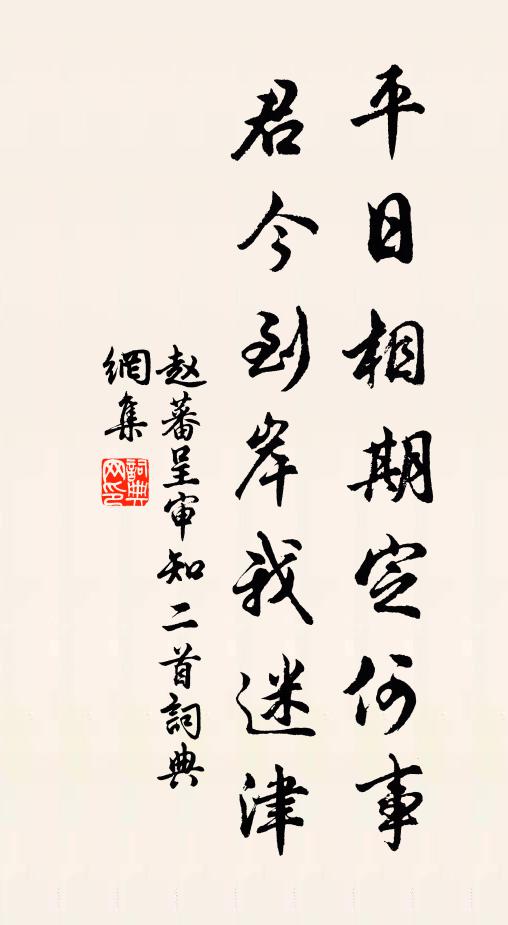 平日相期定何事
君今到岸我迷津
赵蕃呈审知二首詞典
網集
詞典
网印